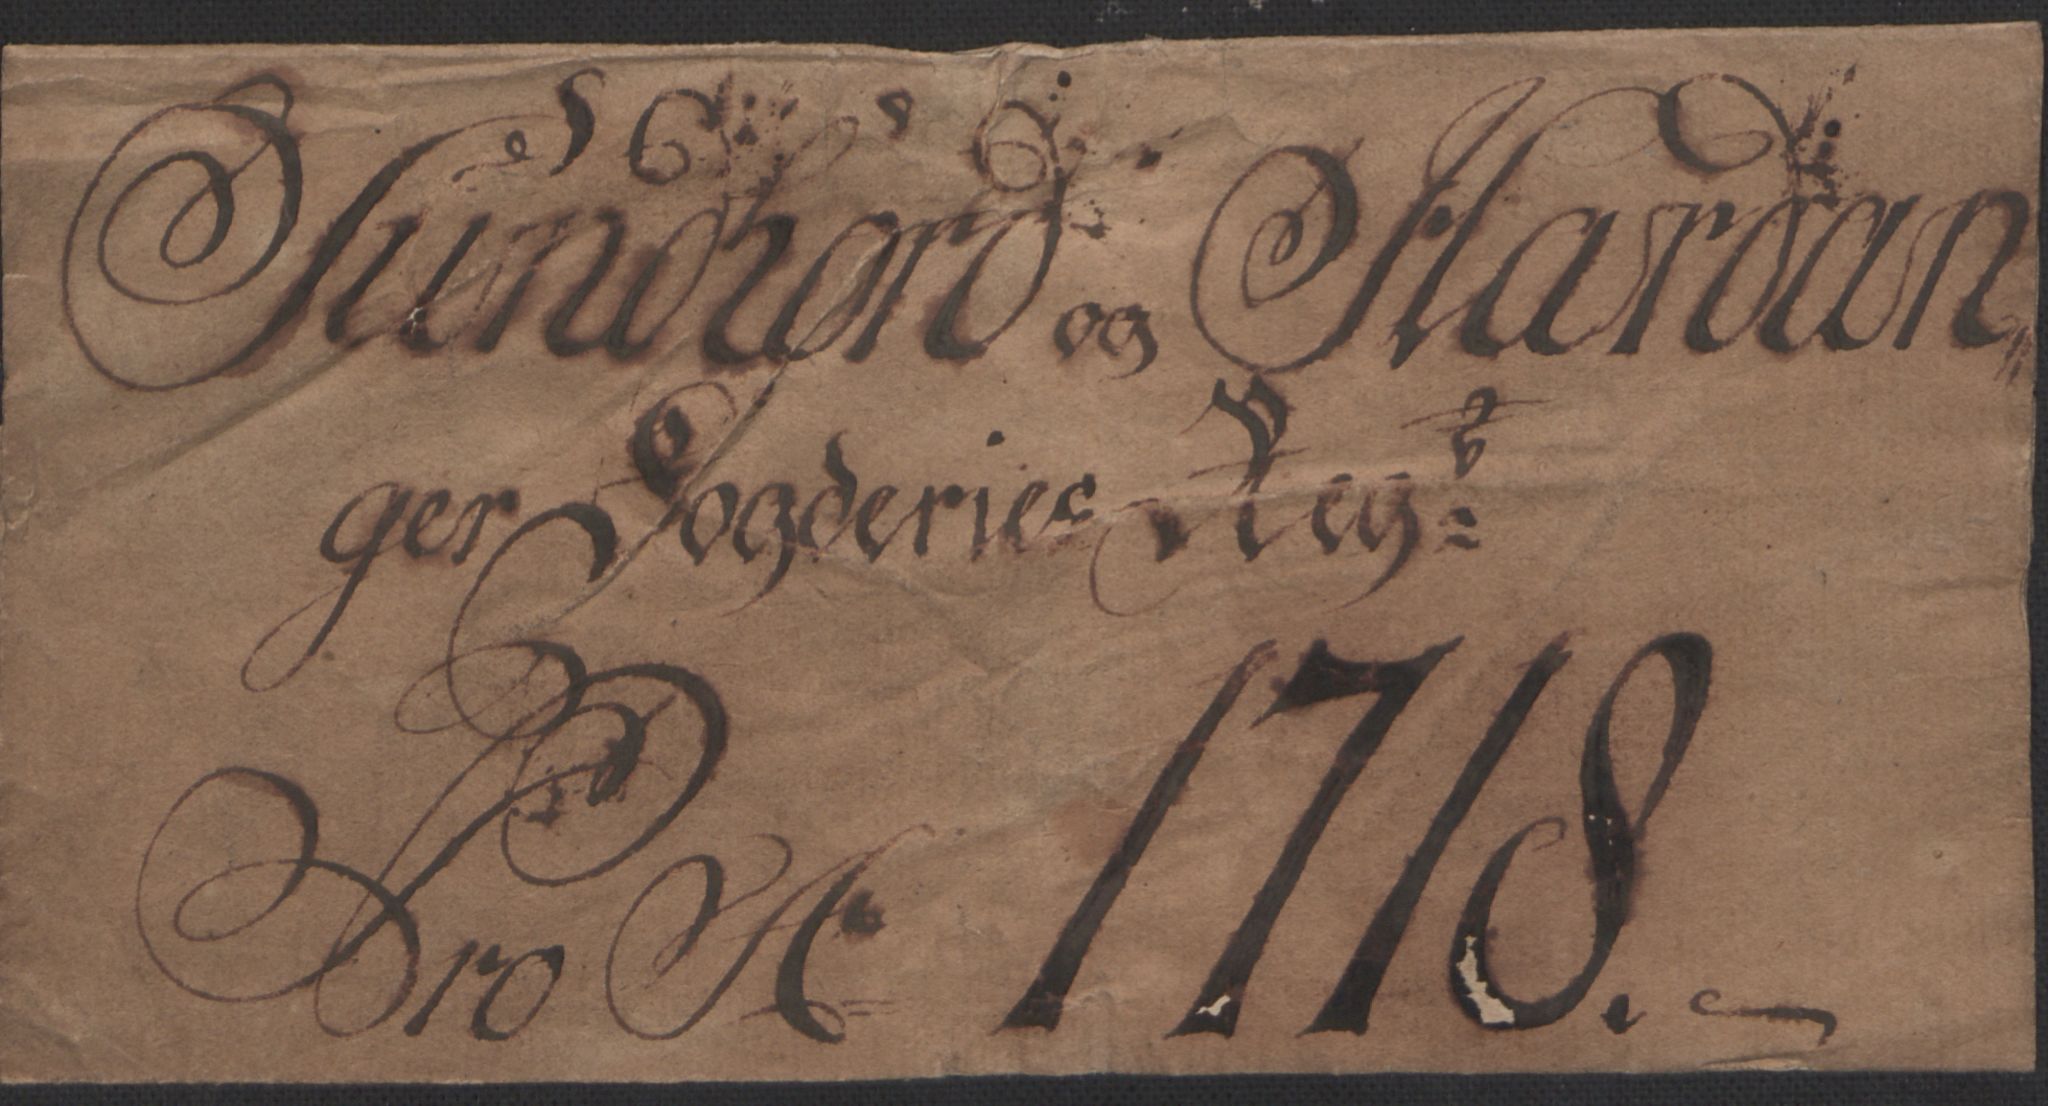 Sundhord og Hardan„
ger Fogderies Regb:
Pro Ao 1718.